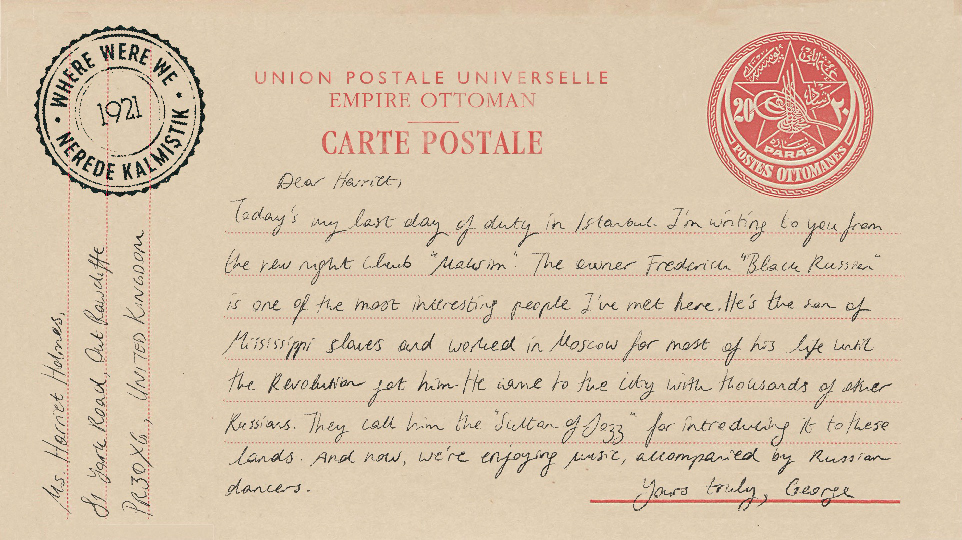 WHERE WERE WE
1921
NEREDE KALMISTIK
UNION POSTALE UNIVERSELLE
EMPIRE OTTOMAN
CARTE POSTALE
20 ٢٠
PARAS
POSTES OTTOMANES
Dear Harriet,
Today's my last day of duty in Istanbul. I'm writing to you from
the new night club "Maksim". The owner Frederick "Black Russian"
is one of the most interesting people I've met here. He's the son of
Mississippi slaves and worked in Moscow for most of his life until
the Revolution got him. He came to the city with thousands of other
Russians. They call him the "Sultan of Jazz" for introducing it to these
lands. And now, we're enjoying music, accompanied by Russian
dancers.
Yours truly, George
Ms Harriet Holmes,
York Road, Out Rawcliffe
PR3 0XG, UNITED KINGDOM